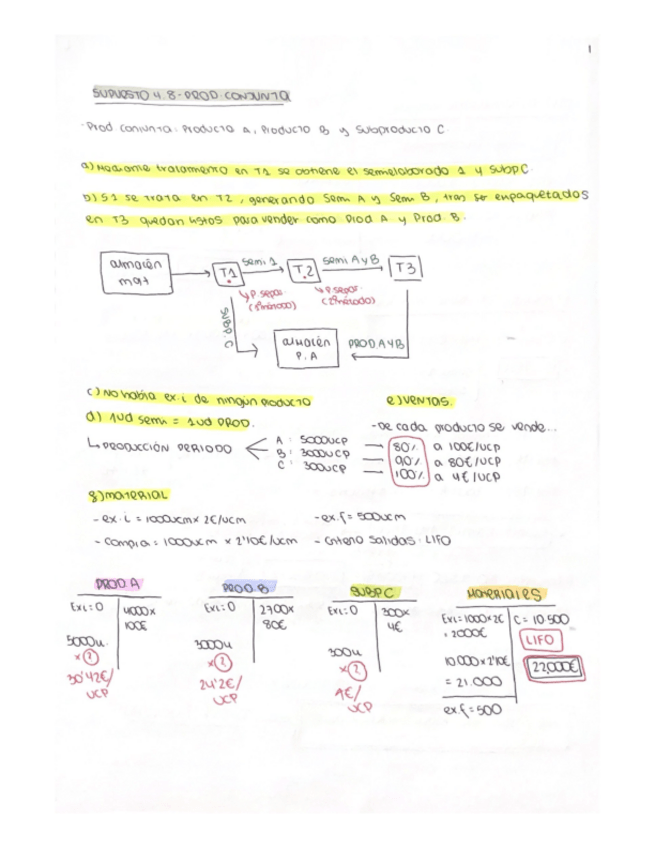 1
SUPUESTO 4.8 - PROD. CONJUNTA
- Prod conjunta: Producto A, Producto B y Subproducto C.
a) Mediante tratamiento en T1 se obtiene el semielaborado 1 y Subp C
b) S1 se trata en T2, generando Semi A y Semi B, tras ser empaquetados
en T3 quedan listos para vender como Prod A y Prod. B.
almacén
mat
T1
semi 1
T.2
semi A y B
T3
P. sepa.
(1º método)
P. sepa.
(2º método)
SUBP. C
almacén
P.A
PROD A y B
c) No había ex.i de ningún producto
d) 1ud semi = 1ud PROD.
↳ PRODUCCIÓN PERIODO
A: 5000 UCP
B: 3000 UCP
C: 300 UCP
e) VENTAS.
- De cada producto se vende...
80% a 100€/UCP
90% a 80€/UCP
100% a 4€/UCP
g) MATERIAL
- ex.i = 1000ucm x 2€/ucm
- ex.f = 500ucm
- Compra = 10000ucm x 2'10€/ucm
- Criterio salidas: LIFO
PROD. A
Exi = 0
4000x
100€
5000u.
x ?
30'42€/
UCP
PROD. B
Exi = 0
2700x
80€
3000u
x ?
24'2€/
UCP
SUBP. C
Exi = 0
300x
4€
300u
x ?
4€/
UCP
Materiales
Exi = 1000x2€
= 2000€
C = 10.500
LIFO
10.000 x 2'10€
= 21.000
22,000€
ex.f = 500